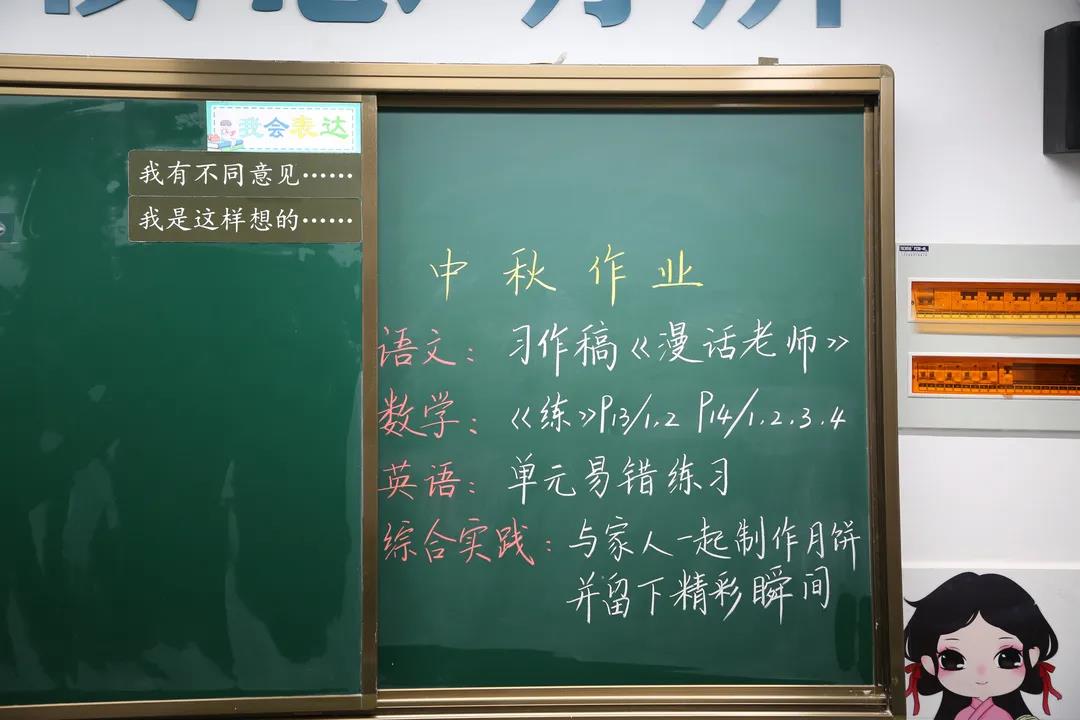 我会表达
我有不同意见……
我是这样想的……
中秋作业
语文：习作稿《漫话老师》
数学：《练》P13/1.2 P14/1.2.3.4
英语：单元易错练习
综合实践：与家人一起制作月饼
并留下精彩瞬间